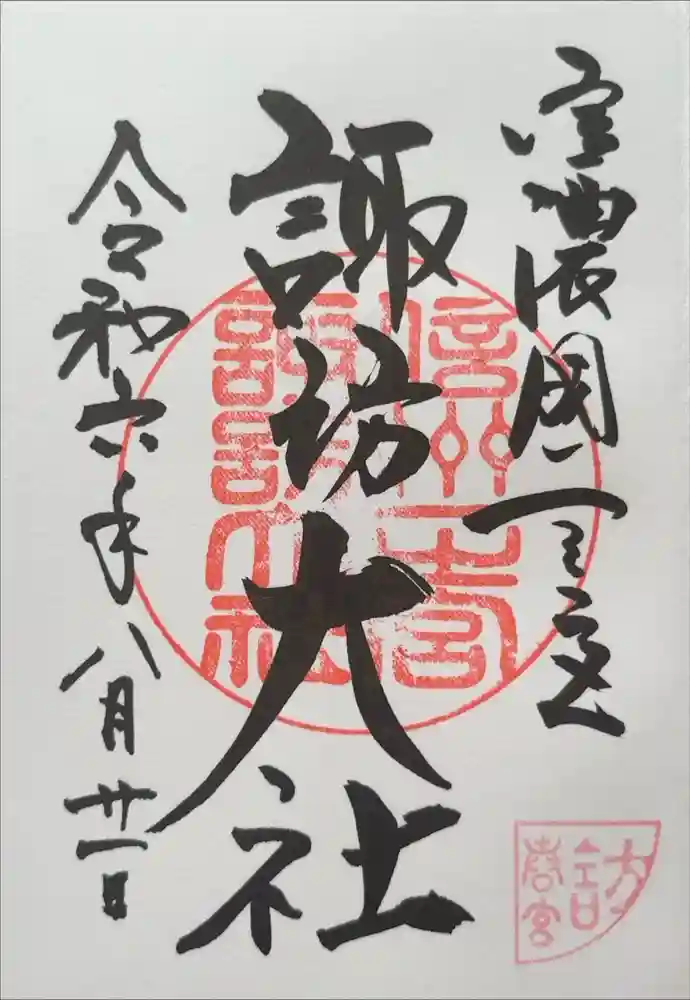 信濃國一之宮
諏訪大社
令和六年八月廿一日
信州一宮
諏訪大社
春宮